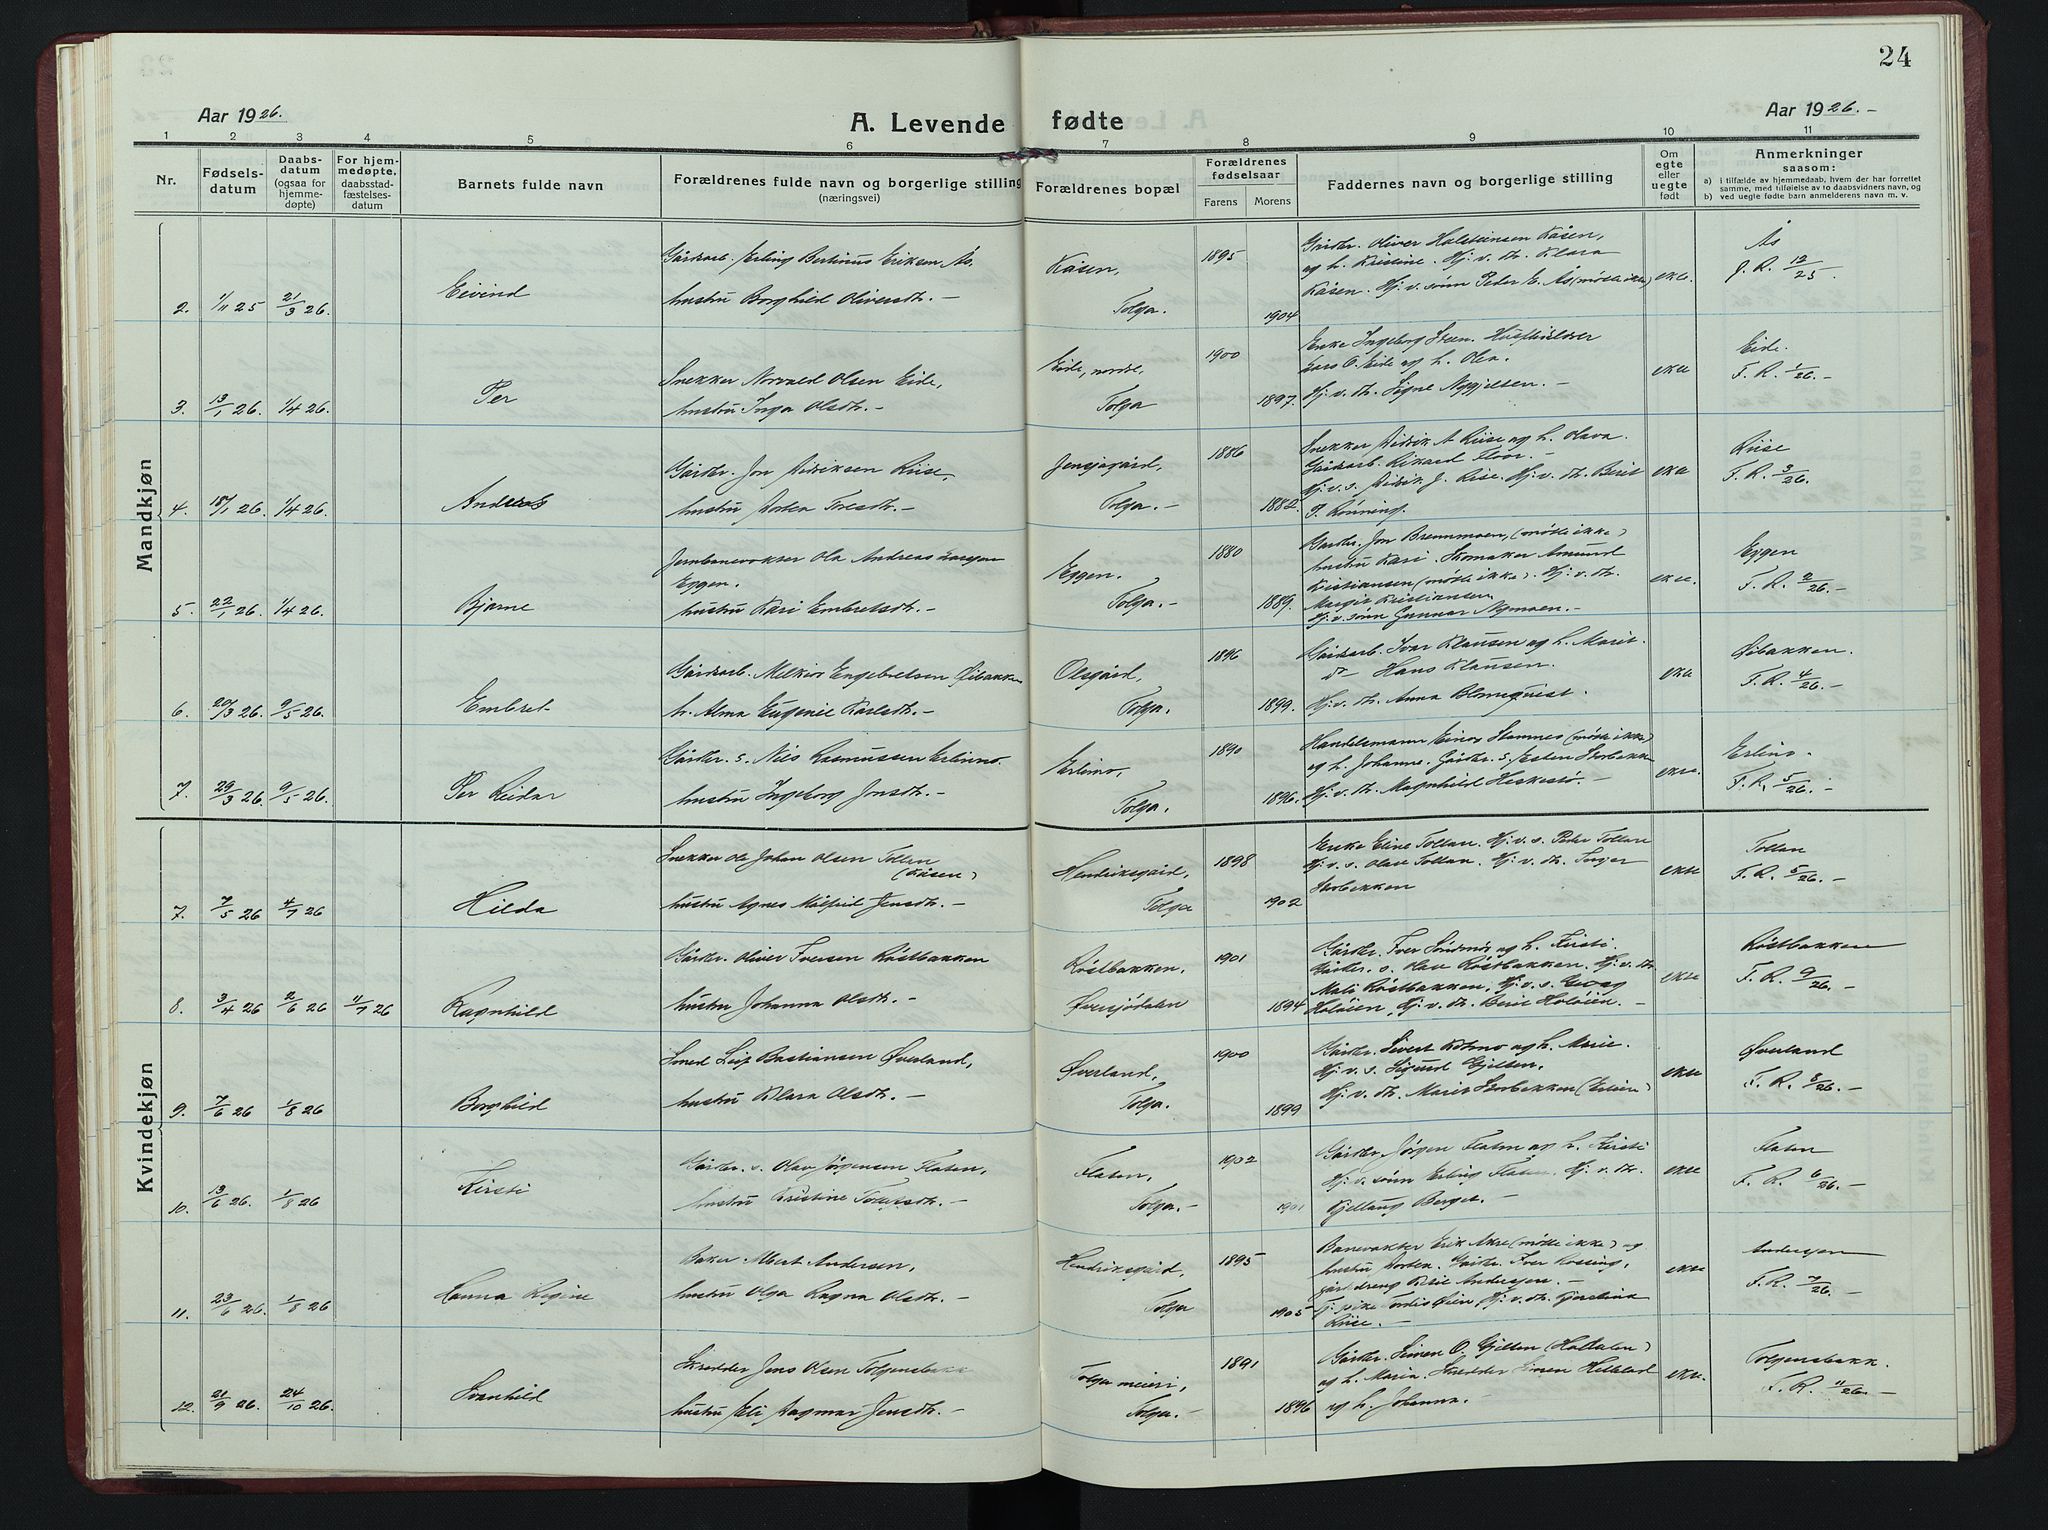 24
Aar 1926.
A. Levende fødte
Aar 1926.-
1 2 3 4 5 6 7 8 9 10 11
Nr.
Fødsels-
datum
Daabs-
datum
(ogsaa for
hjemme-
døpte)
For hjem-
medøpte,
daabsstad-
fæstelses-
datum
Barnets fulde navn
Forældrenes fulde navn og borgerlige stilling
(næringsvei)
Forældrenes bopæl
Forældrenes
fødselsaar
Farens Morens
Faddernes navn og borgerlige stilling
Om
egte
eller
uegte
født
Anmerkninger
saasom:
a) i tilfælde av hjemmedaab, hvem der har forrettet
samme, med tilføielse av to daabsvidners navn, og
b) ved uegte fødte barn anmelderens navn m. v.
Mandkjøn
2. 1/11 25 21/3 26. Eivind
Gårdsarb. Erling Bertinus Eriksen Ås,
hustru Borghild Oliversdtr. -
Kåsen,
Tolga.
1895
1904
Gårdbr. Oliver Halstensen Kåsen,
og h. Kristine. Hj. v. dtr. Klara
Kåsen. Hj. v. sønn Peder E. Ås (møtte ikke)
ekte.
Ås
J. R. 12/25.
3. 13/1 26. 1/4 26. Per
Snekker Norvald Olsen Eide,
hustru Inga Olsdtr. -
Eide, nordre,
Tolga
1900
1897.
Enke Ingeborg Steen. Husfholder
Lars O. Eide og h. Olea.
Hj. v. dtr. Signe Nygjelsen. -
ekte
Eide.
F. R. 1/26. -
4. 18/1 26. 1/4 26. Andreas
Gårdbr. Jon Didriksen Riise,
hustru Dortea Toresdtr. -
Jensjagård,
Tolga. -
1886
1882.
Snekker Didrik A Riise og h. Olava.
Gårdsarb. Rikard Floor. -
Hj. v. s. Didrik J. Riise. Hj. v. dtr. Berit
P. Rønning.
ekte
Riise
F. R. 3/26.
5. 22/1 26. 1/4 26. Bjarne
Jernbanevokter Ola Andreas Larsen
Eggen.
hustru Kari Embretsdtr. -
Eggen.
Tolga. -
1880
1889.
Gårdbr. Jon Brennmoen, (møtte ikke)
hustru Kari. Skomaker Amund
Kristiansen (møtte ikke). Hj. v. dtr.
Margit Kristiansen
Hj. v. sønn Gunnar Nymoen. -
ekte.
Eggen
F. R. 2/26. -
6. 20/3 26. 9/5 26. Embret
Gårdsarb. Melkior Engebretsen Øibakken
h. Alma Eugenie Karlsdtr. -
Olsgård,
Tolga.
1896
1899.
Gårdsarb. Ivar Klausen og h. Marit.
do Hans Klausen.
Hj. v. dtr. Anna Blomquist.
ekte
Øibakken.
F. R. 4/26. -
7. 29/3 26. 9/5 26. Per Reidar
Gårdbr. s. Nils Rasmussen Erlimo.
hustru Ingeborg Jonsdtr. -
Erlimo,
Tolga.
1890
1896.
Handelsmann Einar Stamnes (møtte ikke)
og h. Johanne. Gårdbr. s. Jesten Storbekken
Hj. v. dtr. Magnhild Heskestø. -
ekte.
Erlimo.
F. R. 5/26. -
Kvindekjøn
7. 7/5 26 4/7 26 Hilda
Snekker Ole Johan Olsen Tollan
(Kåsen)
hustru Agnes Målfrid Jensdtr. -
Hendriksgård,
Tolga
1898
1902
Enke Eline Tollan. Hj. v. s. Peder Tollan
Hj. v. s. Olav Tollan. Hj. v. dtr. Inger
Storbekken
ekte
Tollan
F. R. 5/26. -
8. 3/4 26 2/6 26 11/7 26 Ragnhild
Gårdbr. Oliver Iversen Røstbakken
hustru Johanna Olsdtr. -
Røstbakken,
Øversjødalen
1901
1894
Gårdbr. Iver Søndmør og h. Kirsti.
Gårdbr. s. Olav Røstbakken, Hj. v. dtr.
Mali Røstbakken, Hj. v. s. Esvag
Holøien, Hj. v. dtr. Berit Holøien. -
ekte
Røstbakken
F. R. 9/26. -
9. 7/6 26 1/8 26 Borghild
Smed Leif Bastiansen Øverland,
hustru Klara Olsdtr. -
Øverland,
Tolga.
1900
1899
Gårdbr. Sivert Kolmo og h. Marie.
Hj. v. s. Sigurd Gjelten,
Hj. v. dtr. Marie Storbekken (Erlien)
ekte
Øverland
F. R. 8/26. -
10. 13/6 26. 1/8 26 Kirsti
Gårdbr. s. Olav Jørgensen Flaten,
hustru Kristine Tollefsdtr. -
Flaten,
Tolga. -
1902
1901
Gårdbr. Jørgen Flaten og h. Kirsti
Hj. v. sønn Erling Flaten. Hj. v. dtr.
Kjellaug Berget. -
ekte
Flaten
F. R. 6/26. -
11. 23/6 26. 1/8 26 Hanna Regine
Baker Albert Andersen,
hustru Olga Ragna Olsdtr. -
Hendriksgård,
Tolga
1895
1905
Banevakter Erik Akre (møtte ikke) og
hustru Dortea. Gårdbr. Iver Kossing,
gårdsdreng Riise Andersen. -
Tj. pike Tordis Øien Hj. v. dtr. Gjertine
Riise. -
ekte
Andersen
F. R. 7/26. -
12. 21/9 26. 24/10 26. Svanhild
Skredder Jens Olsen Tolgensbakk
hustru Eli Dagmar Jensdtr. -
Tolga meieri,
Tolga. -
1891
1896
Gårdbr. Simen O. Gjelten (Holtalen)
og h. Maria. Skredder Simen Hilstad
og h. Johanna. -
ekte.
Tolgensbakk.
F. R. 11/26. -